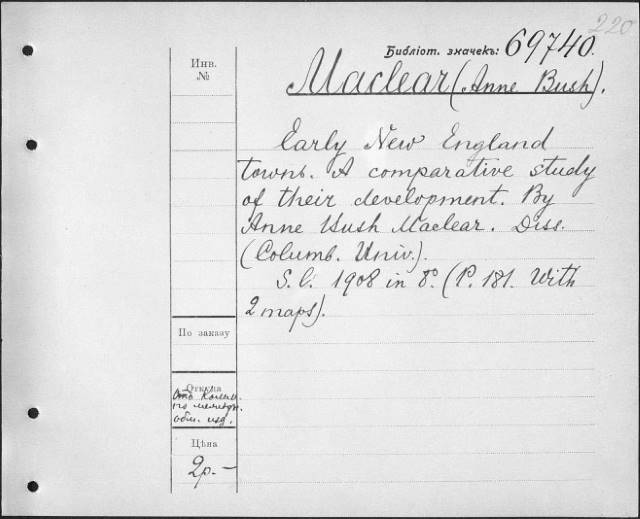 220
Библіот. значекъ: 69740.
Инв.
№
Maclear (Anne Bush).
Early New England
towns. A comparative study
of their development. By
Anne Bush Maclear. Diss.
(Columb. Univ.).
S. l. 1908 in 8°. (P. 181. With
2 maps).
По заказу
Откуда
Отъ Комм.
по междун.
обм. изд.
Цѣна
2р.—